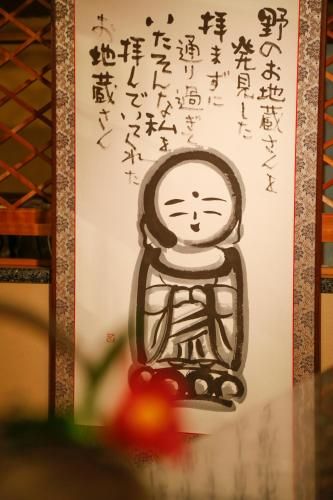 野のお地蔵さんを
発見した
拝まずに
通り過ぎく
いたそんな私を
拝んでいてくれた
お地蔵さん